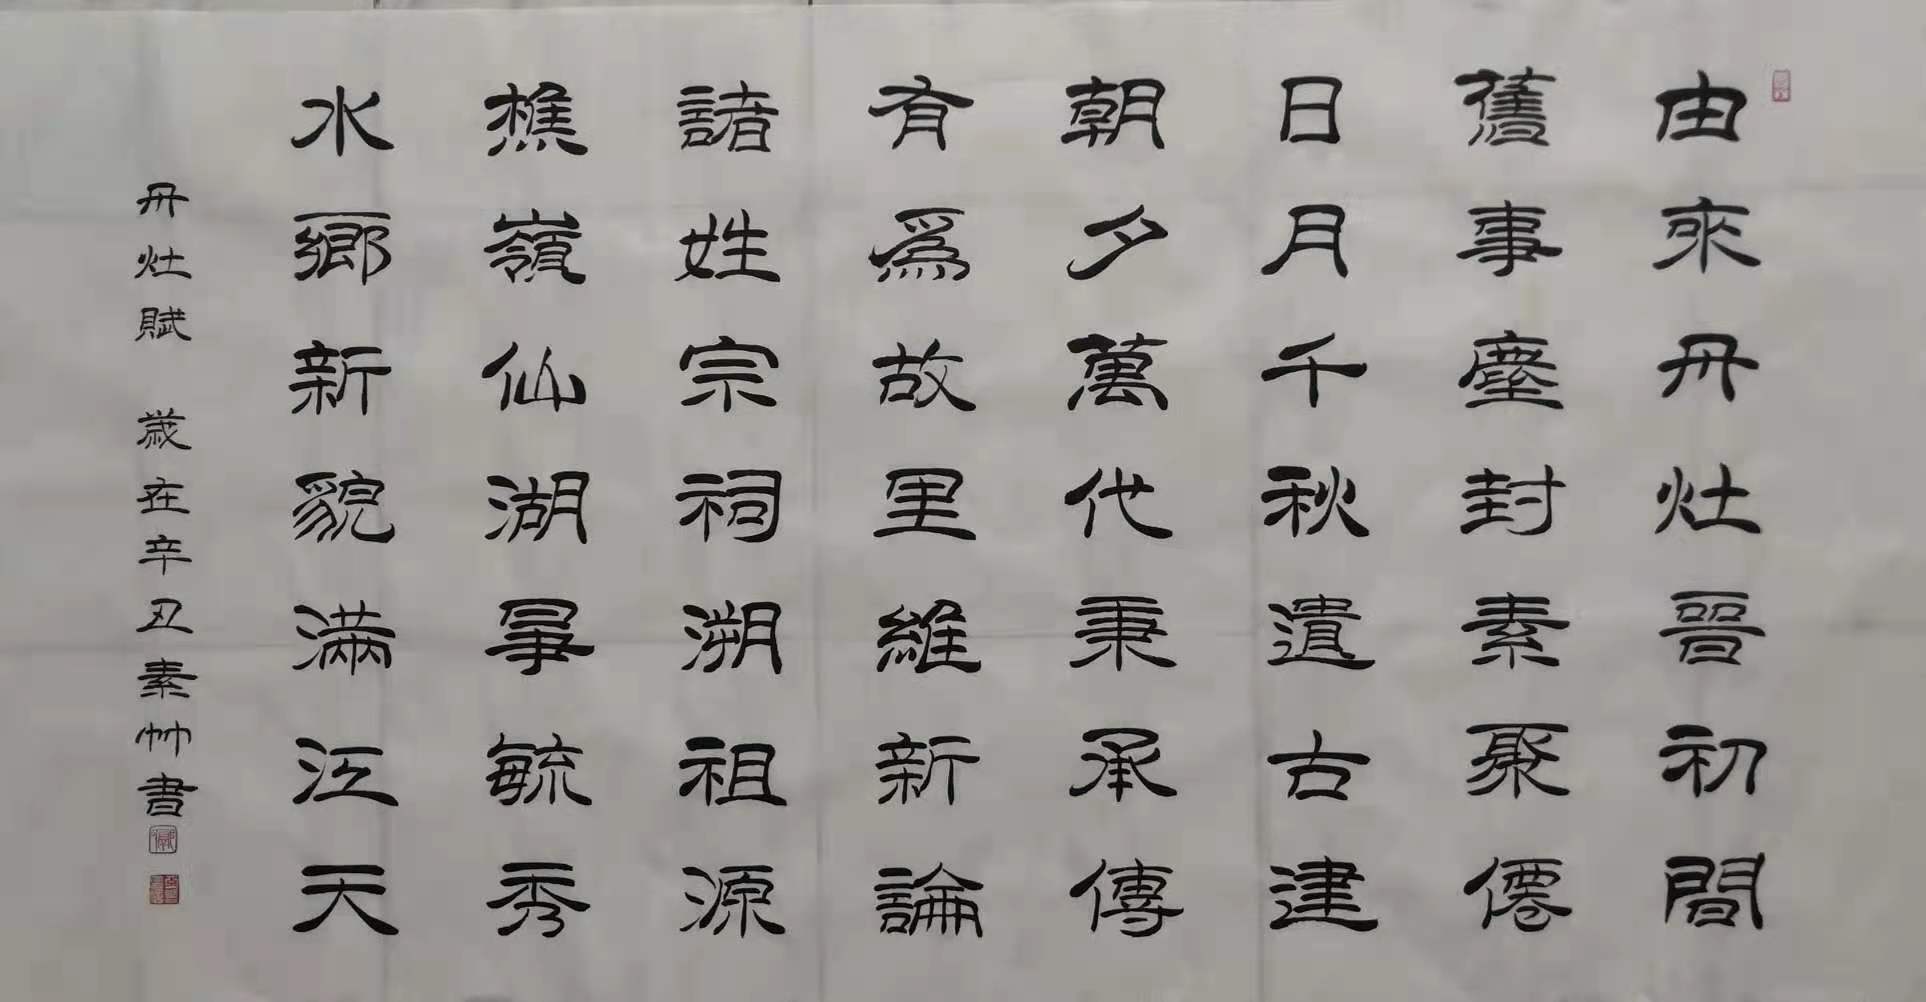 由來丹灶晉初間
舊事塵封素聚僊
日月千秋遺古建
朝夕萬代秉承傳
有爲故里維新論
諸姓宗祠溯祖源
樵嶺仙湖畢毓秀
水鄉新貌滿江天
丹灶賦 歲在辛丑素竹書